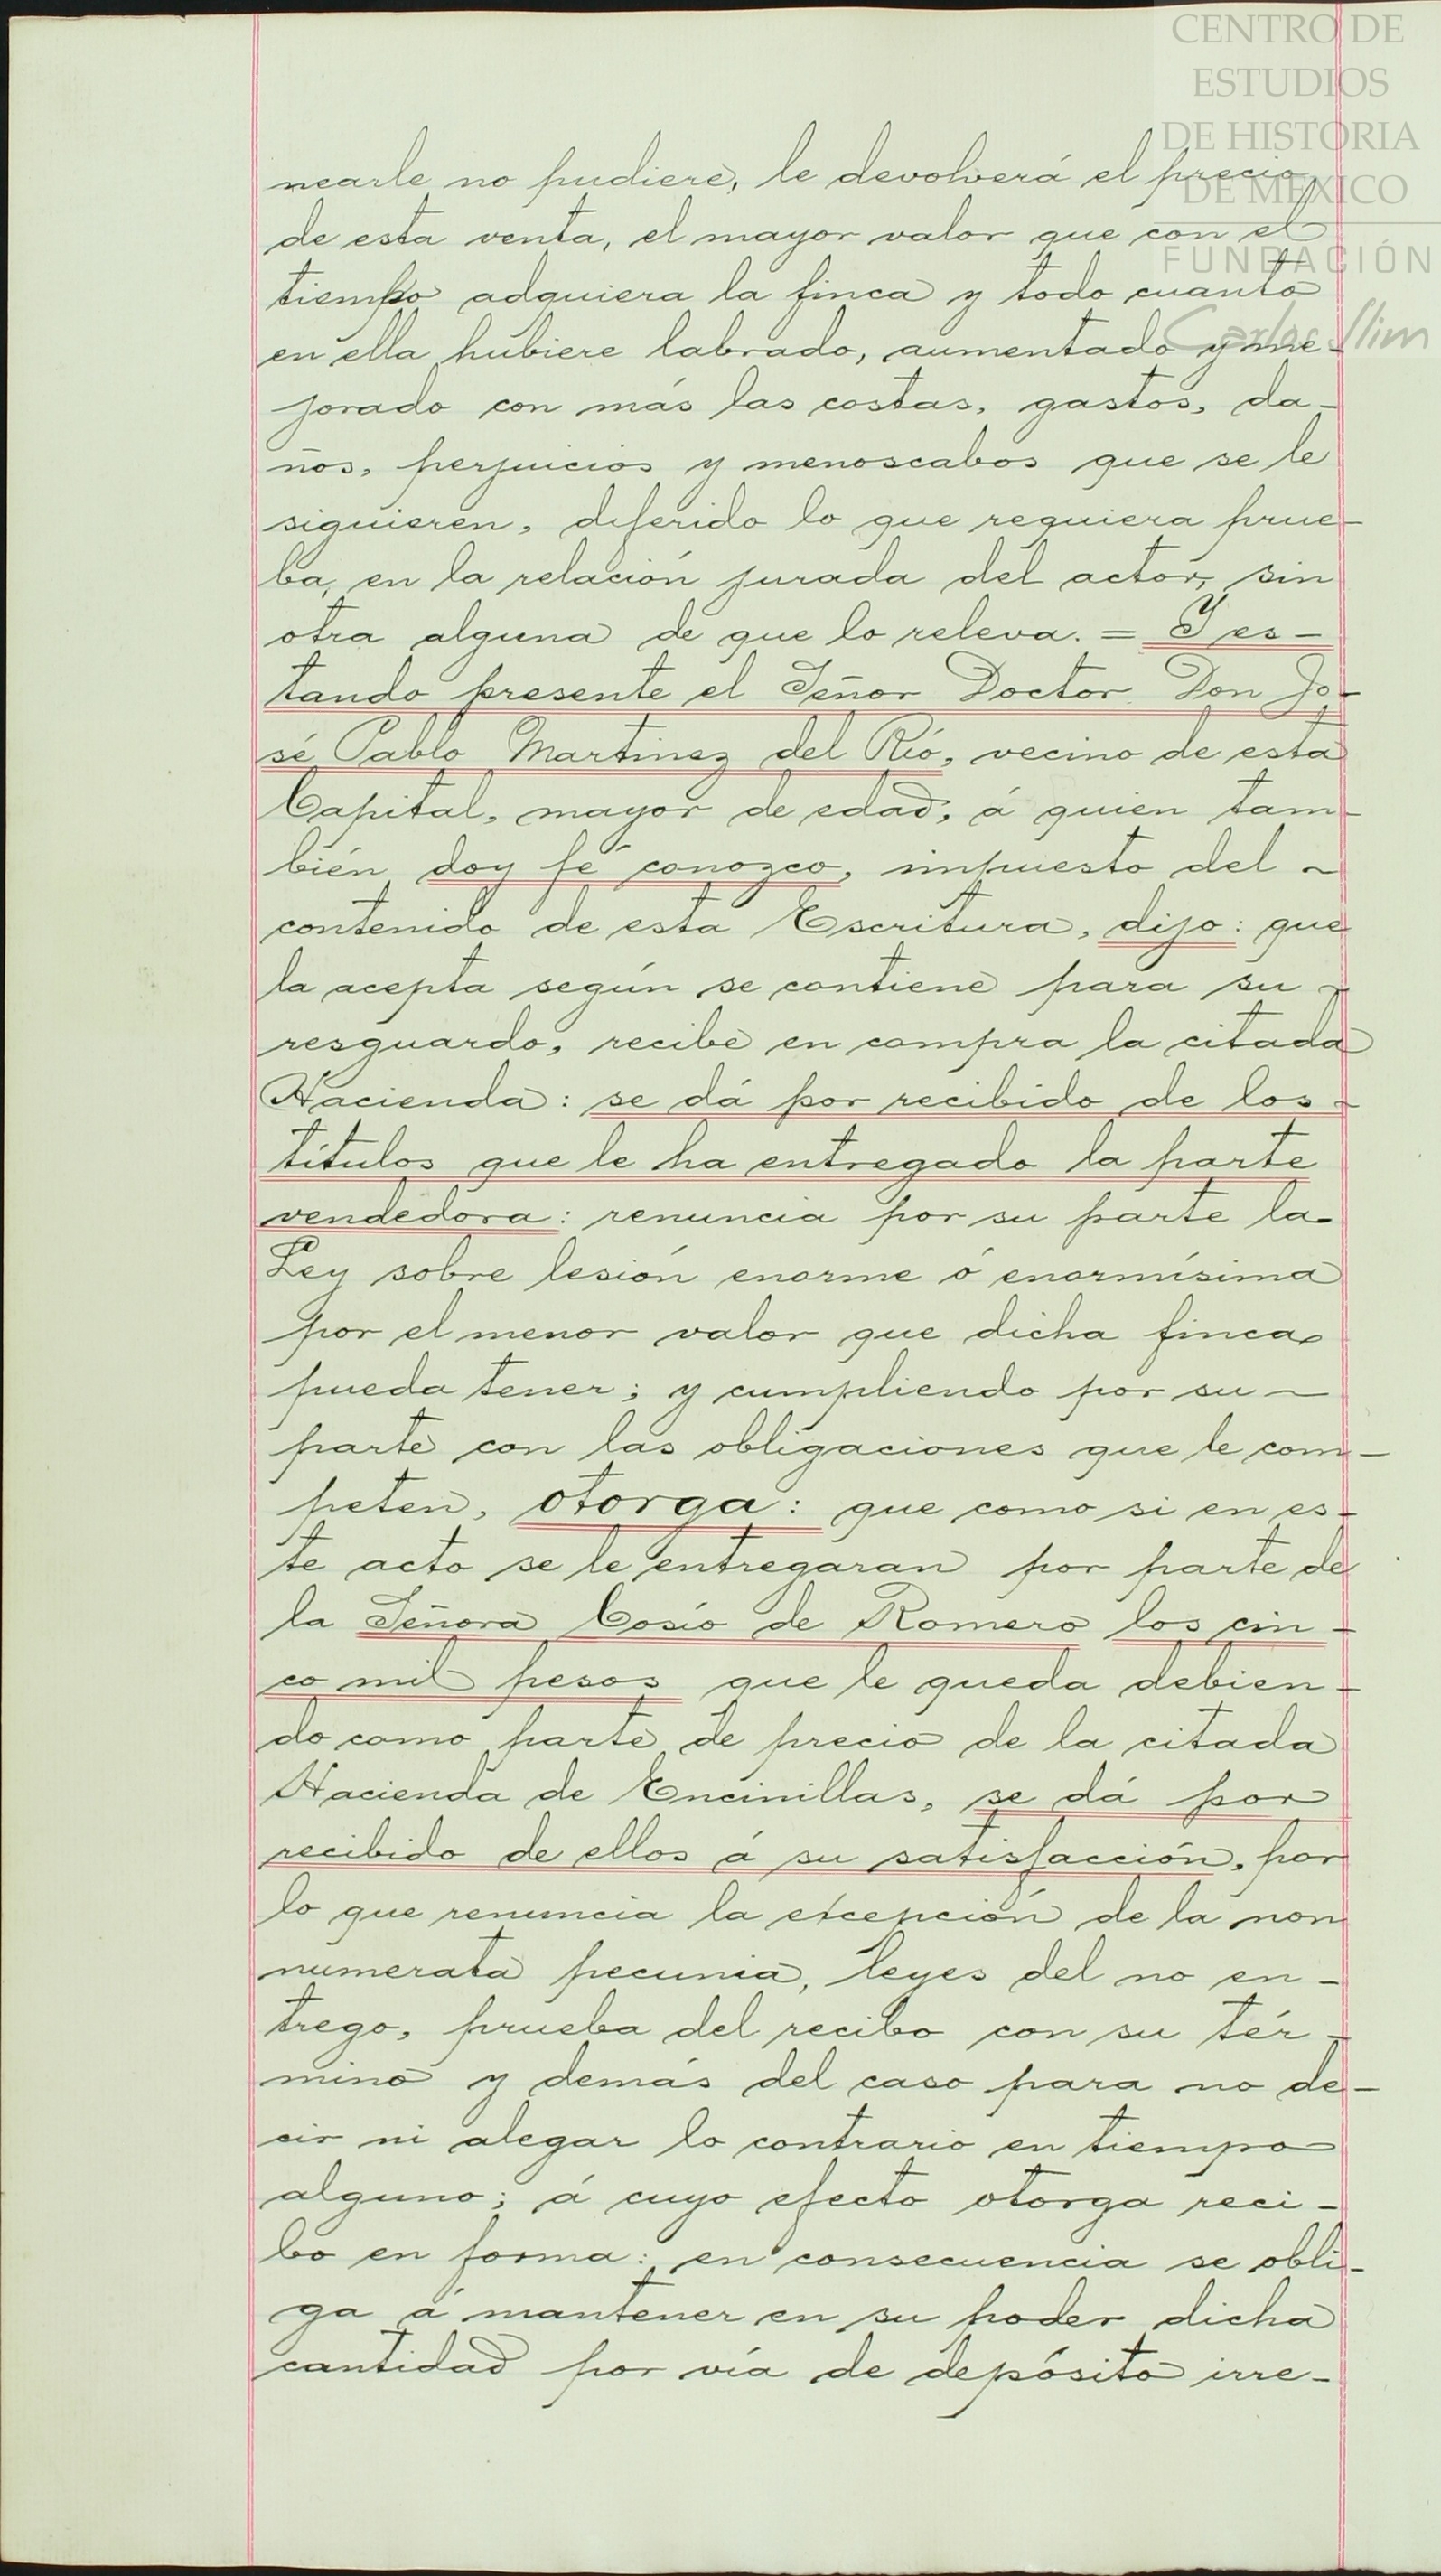 CENTRO DE
ESTUDIOS
DE HISTORIA
DE MÉXICO
FUNDACIÓN
Carlos Slim
nearle no pudiere, le devolverá el precio
de esta venta, el mayor valor que con el
tiempo adquiera la finca y todo cuanto
en ella hubiere labrado, aumentado y me-
jorado con más las costas, gastos, da-
ños, perjuicios y menoscabos que se le
siguieren, diferido lo que requiera prue-
ba, en la relación jurada del actor, sin
otra alguna de que lo releva. = Y es-
tando presente el Señor Doctor Don Jo-
sé Pablo Martinez del Rió, vecino de esta
Capital, mayor de edad, á quien tam-
bién doy fé conozco, impuesto del ~
contenido de esta Escritura, dijo: que
la acepta según se contiene para su ~
resguardo, recibe en compra la citada
Hacienda: se dá por recibido de los -
títulos que le ha entregado la parte
vendedora: renuncia por su parte la
Ley sobre lesión enorme ó enormísima
por el menor valor que dicha finca
pueda tener; y cumpliendo por su ~
parte con las obligaciones que le com-
peten, otorga: que como si en es-
te acto se le entregaran por parte de
la Señora Cosío de Romero los cin-
co mil pesos que le queda debien-
do como parte de precio de la citada
Hacienda de Encinillas, se dá por
recibido de ellos á su satisfacción, por
lo que renuncia la excepción de la non
numerata pecunia, leyes del no en-
trego, prueba del recibo con su tér-
mino y demás del caso para no de-
cir ni alegar lo contrario en tiempo
alguno; á cuyo efecto otorga reci-
bo en forma: en consecuencia se obli-
ga á mantener en su poder dicha
cantidad por vía de depósito irre-